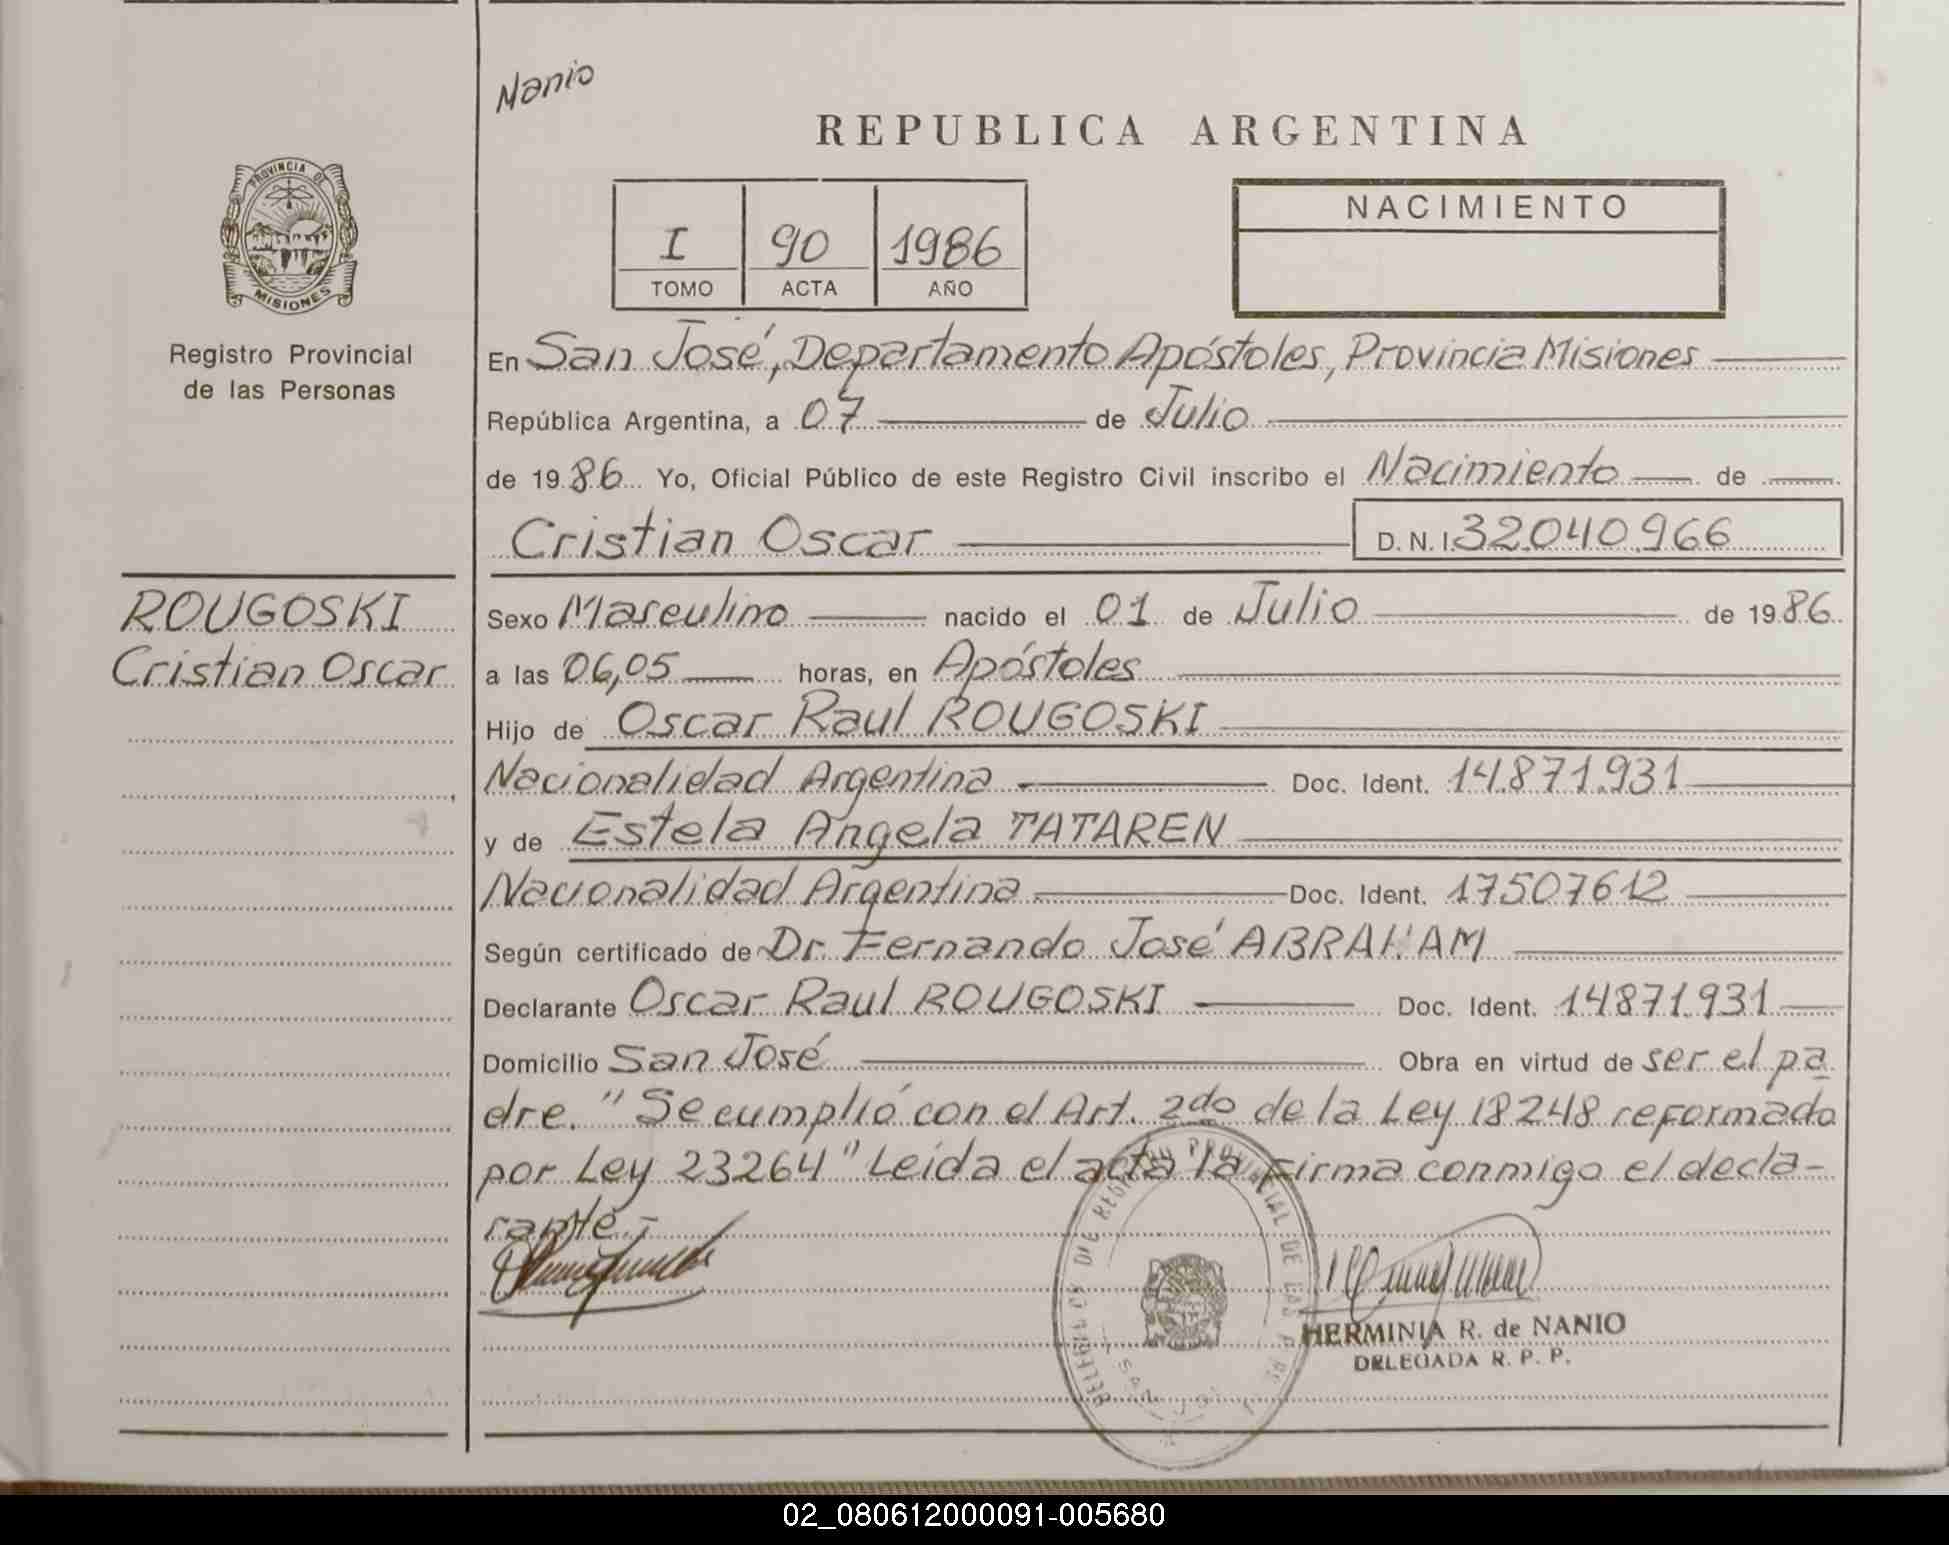 Nanio
REPUBLICA ARGENTINA
PROVINCIA DE
MISIONES
Registro Provincial
de las Personas
I 90 1986
TOMO ACTA AÑO
NACIMIENTO
En San José, Departamento Apóstoles, Provincia Misiones
República Argentina, a 07 de Julio
de 19 86 Yo, Oficial Público de este Registro Civil inscribo el Nacimiento de
Cristian Oscar D. N. I. 32.040.966
ROUGOSKI
Cristian Oscar
Sexo Masculino nacido el 01 de Julio de 19 86
a las 06,05 horas, en Apóstoles
Hijo de Oscar Raul ROUGOSKI
Nacionalidad Argentina Doc. Ident. 14.871.931
y de Estela Angela TATAREN
Nacionalidad Argentina Doc. Ident. 17507612
Según certificado de Dr. Fernando José ABRAHAM
Declarante Oscar Raul ROUGOSKI Doc. Ident. 14871.931
Domicilio San José Obra en virtud de ser el pa
dre. "Se cumplió con el Art. 2do de la Ley 18248 reformado
por Ley 23264" Leída el acta la firma conmigo el decla-
rante.-
HERMINIA R. de NANIO
DELEGADA R. P. P.
02_080612000091-005680